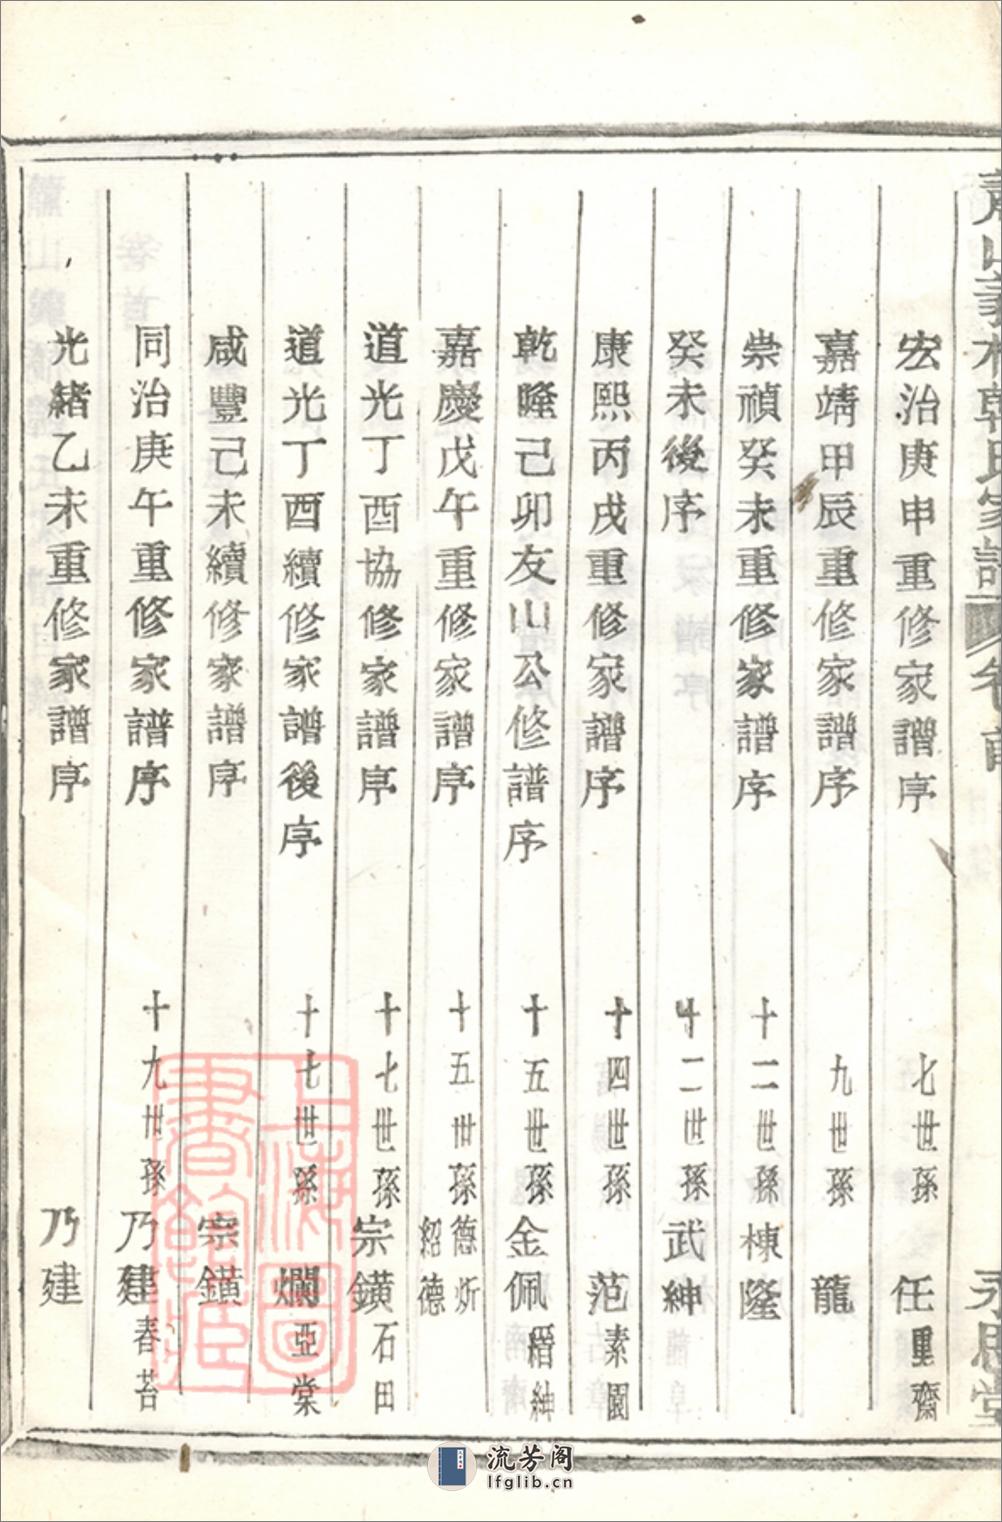 蕭山義橋韓氏家譜 卷首 永思堂
宏治庚申重修家譜序 七世孫 任 重齋
嘉靖甲辰重修家譜序 九世孫 龍
崇禎癸未重修家譜序 十二世孫 棟隆
癸未後序 十二世孫 武紳
康熙丙戌重修家譜序 十四世孫 范 素園
乾隆己卯友山公修譜序 十五世孫 金佩 縉紳
嘉慶戊午重修家譜序 十五世孫 德炘 紹德
道光丁酉協修家譜序 十七世孫 宗鐄 石田
道光丁酉續修家譜後序 十七世孫 爛 亞棠
咸豐己未續修家譜序 宗鐄
同治庚午重修家譜序 十九世孫 乃建 春苔
光緒乙未重修家譜序 乃建
上海圖書館藏
流芳阁
lfglib.cn